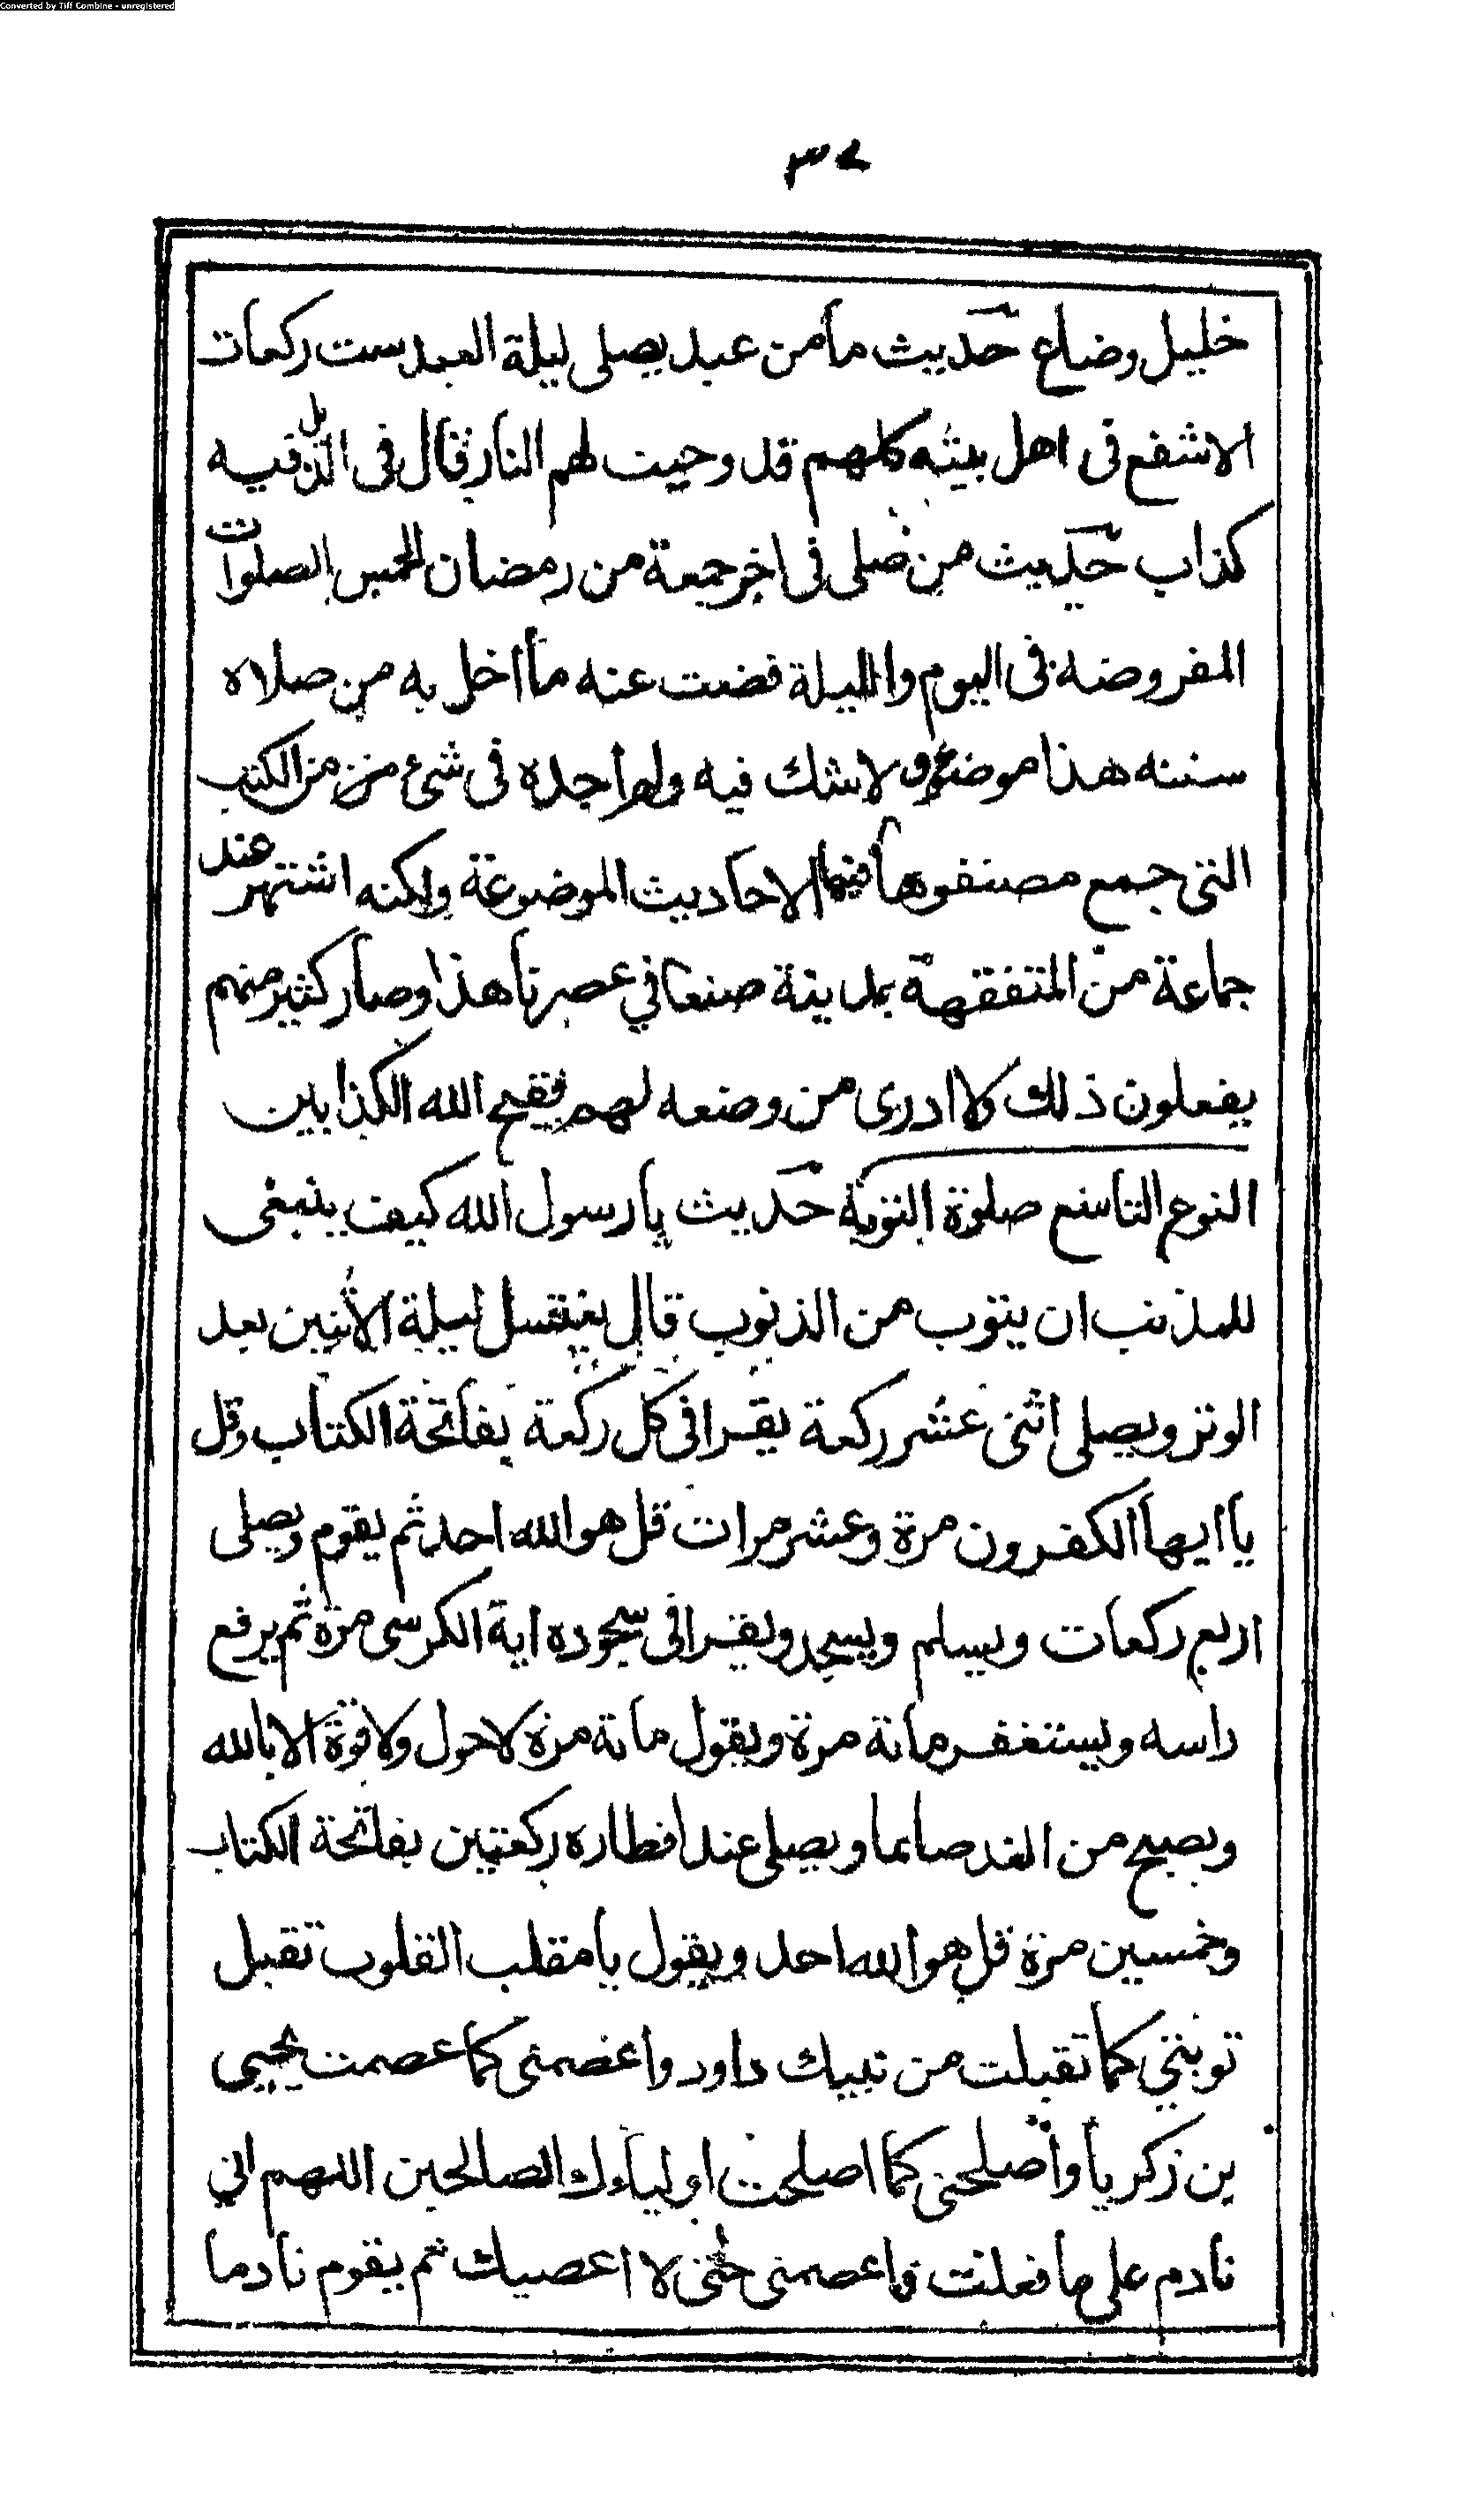 Converted by Tiff Combine - unregistered
٣٤
خليل وضاع حديث ما من عبد يصلى ليلة العيد ست ركعات
الا شفع فى اهل بيته كلهم قد وجبت لهم النار قال فى الذيل فيه
كذاب حديث من صلى فى اخر جمعة من رمضان الخمس الصلوات
المفروضة فى اليوم والليلة قضت عنه ما اخل به من صلاه
سنته هذا موضوع ولا شك فيه ولم اجده فى شئ من الكتب
التى جمع مصنفوها فيها الاحاديث الموضوعة ولكنه اشتهر عند
جماعة من المتفقهة بمدينة صنعا في عصرنا هذا وصار كثير منهم
يفعلون ذلك لا ادرى من وضعه لهم فقبح الله الكذابين
النوع التاسع صلوة التوبة حديث يا رسول الله كيف ينبغى
للمذنب ان يتوب من الذنوب قال يغتسل ليلة الاثنين بعد
الوتر ويصلى اثنى عشر ركعة يقرا فى كل ركعة بفاتحة الكتاب وقل
يا ايها الكفرون مرة وعشر مرات قل هو الله احد ثم يقوم ويصلى
اربع ركعات ويسلم ويسجد ويقرا فى سجوده اية الكرسى مرة ثم يرفع
راسه ويستغفر مائة مرة ويقول مائة مرة لا حول ولا قوة الا بالله
ويصبح من الغد صائما ويصلى عند افطاره ركعتين بفاتحة الكتاب
وخمسين مرة قل هو الله احد ويقول يا مقلب القلوب تقبل
توبتي كما تقبلت من نبيك داود واعصمنى كما عصمت يحيى
بن زكريا واصلحنى كما اصلحت اولياءك الصالحين اللهم اني
نادم على ما فعلت فاعصمنى حتى لا اعصيك ثم يقوم نادما